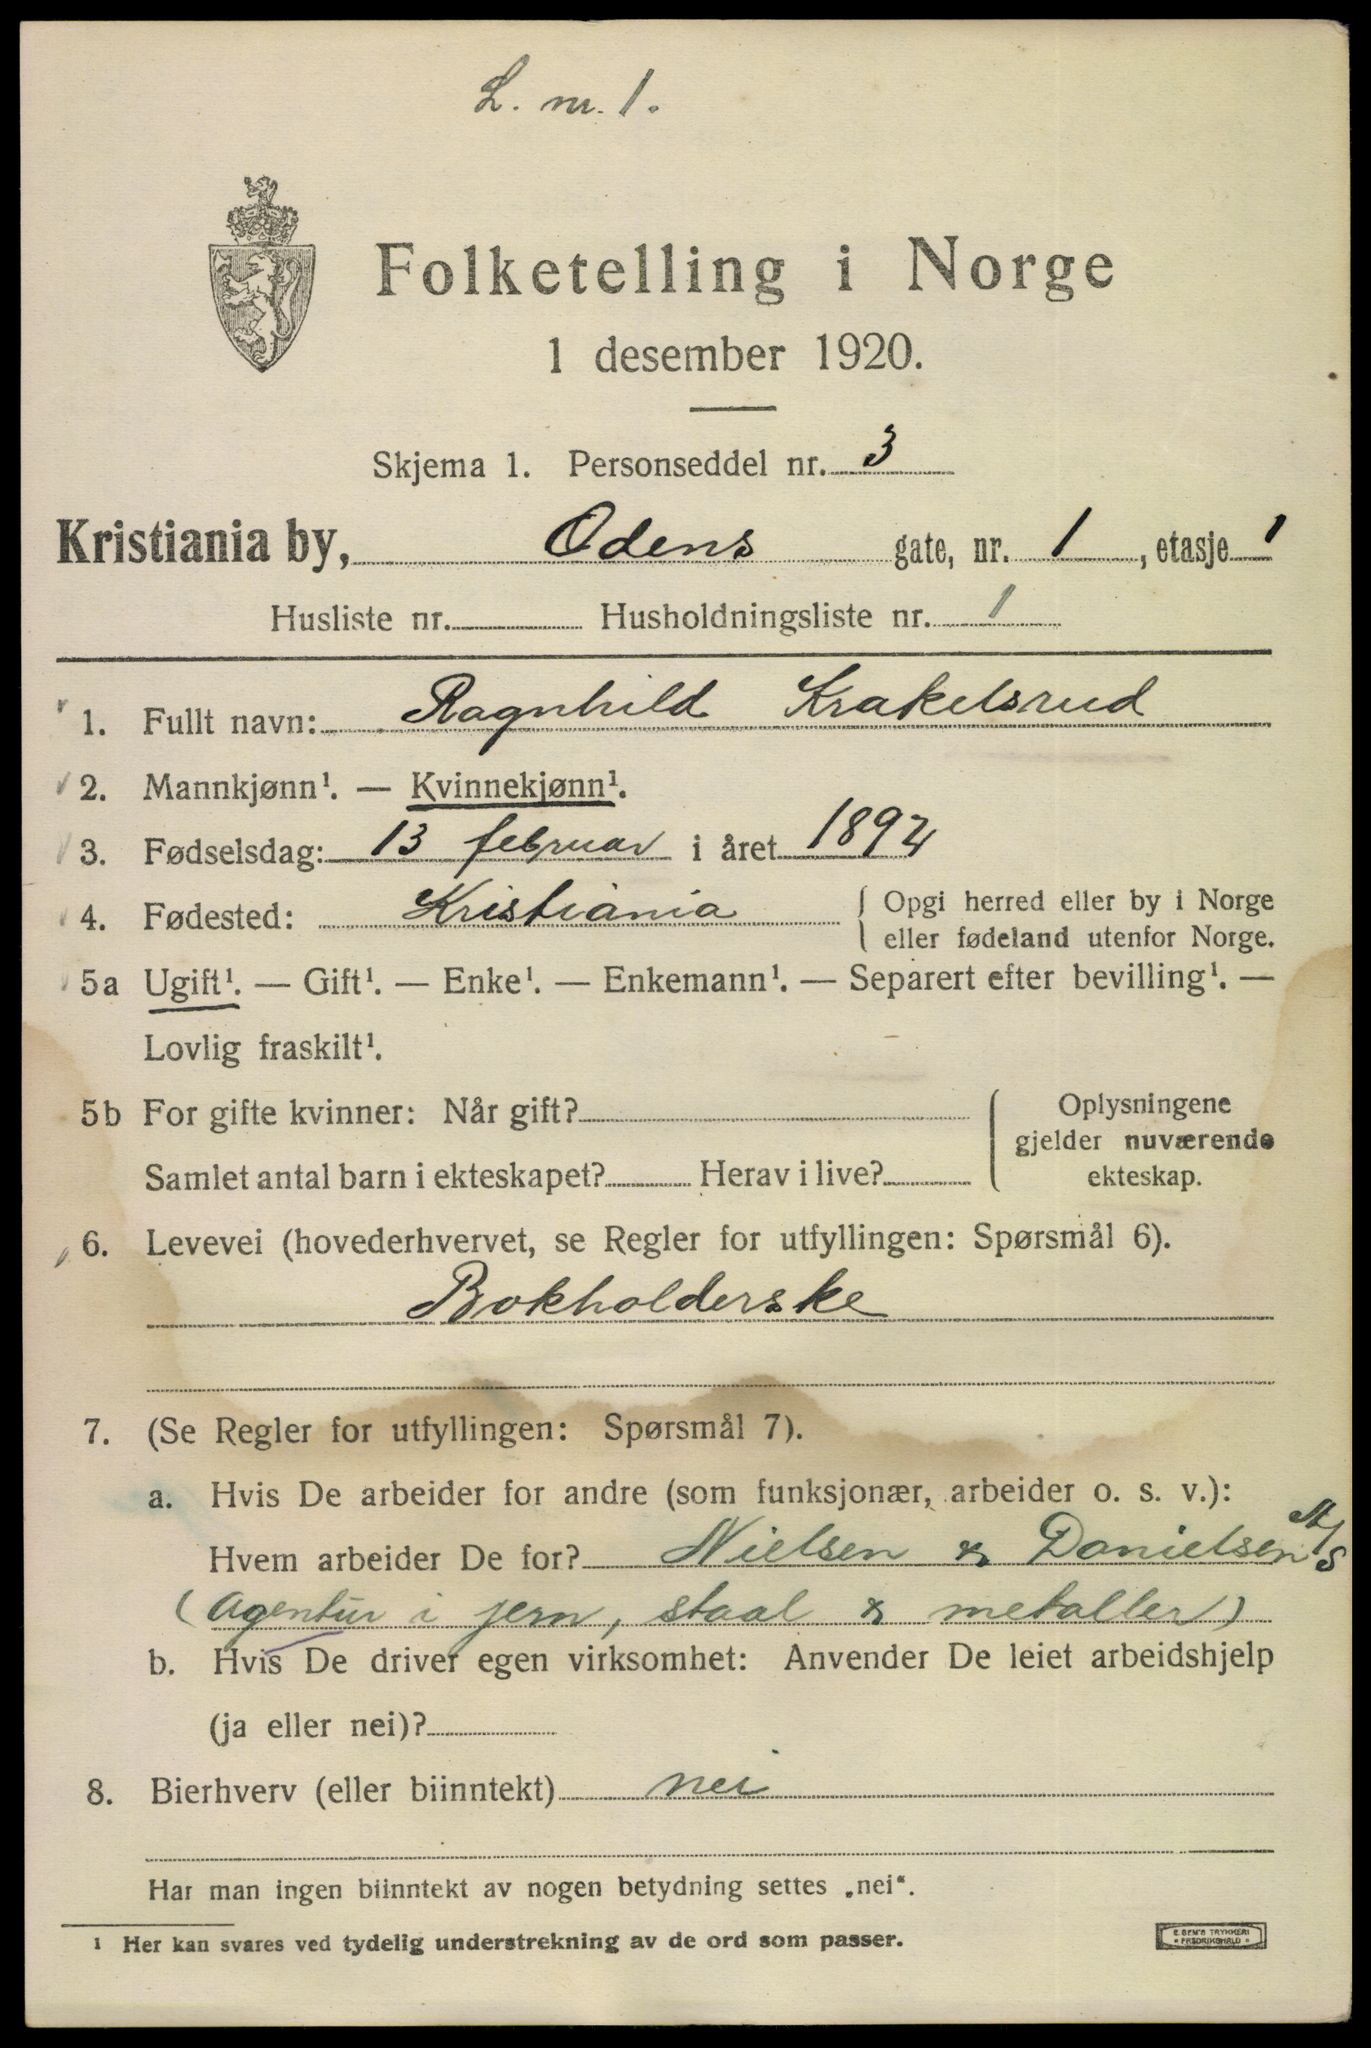 L. nr. 1.
Folketelling i Norge
1 desember 1920.
Skjema 1. Personseddel nr. 3
Kristiania by, Odens gate, nr. 1, etasje 1
Husliste nr. Husholdningsliste nr. 1
1. Fullt navn: Ragnhild Krakelsrud
2. Mannkjønn¹. — Kvinnekjønn¹.
3. Fødselsdag: 13 februar i året 1894
4. Fødested: Kristiania { Opgi herred eller by i Norge
eller fødeland utenfor Norge.
5a Ugift¹. — Gift¹. — Enke¹. — Enkemann¹. — Separert efter bevilling¹. —
Lovlig fraskilt¹.
5b For gifte kvinner: Når gift? { Oplysningene
gjelder nuværende
Samlet antal barn i ekteskapet? Herav i live? ekteskap.
6. Levevei (hovederhvervet, se Regler for utfyllingen: Spørsmål 6).
Bokholderske
7. (Se Regler for utfyllingen: Spørsmål 7).
a. Hvis De arbeider for andre (som funksjonær, arbeider o. s. v.):
Hvem arbeider De for? Nielsen & Danielsen A/S
(Agentur i jern, staal & metaller)
b. Hvis De driver egen virksomhet: Anvender De leiet arbeidshjelp
(ja eller nei)?
8. Bierhverv (eller biinntekt) nei
Har man ingen biinntekt av nogen betydning settes „nei“.
¹ Her kan svares ved tydelig understrekning av de ord som passer.
E. SEM'S TRYKKERI
* FREDRIKSHALD *